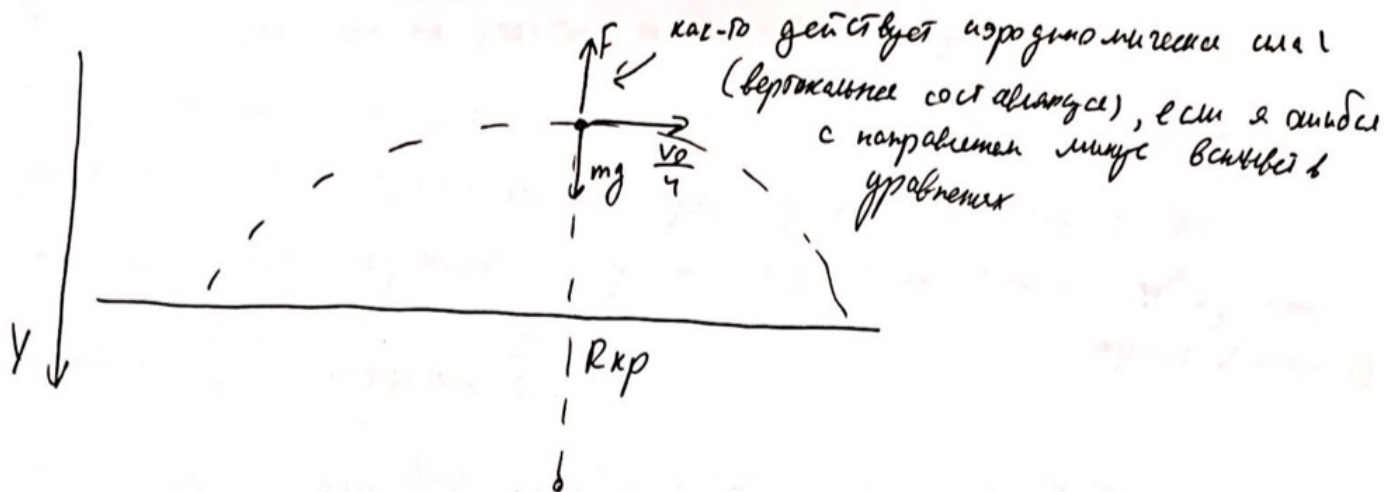 F
как-то действует аэродинамическая сила
(вертикальная составляющая), если я ошибся
с направлением минус всплывёт в
уравнениях
mg
v₀
4
Y
Rкр